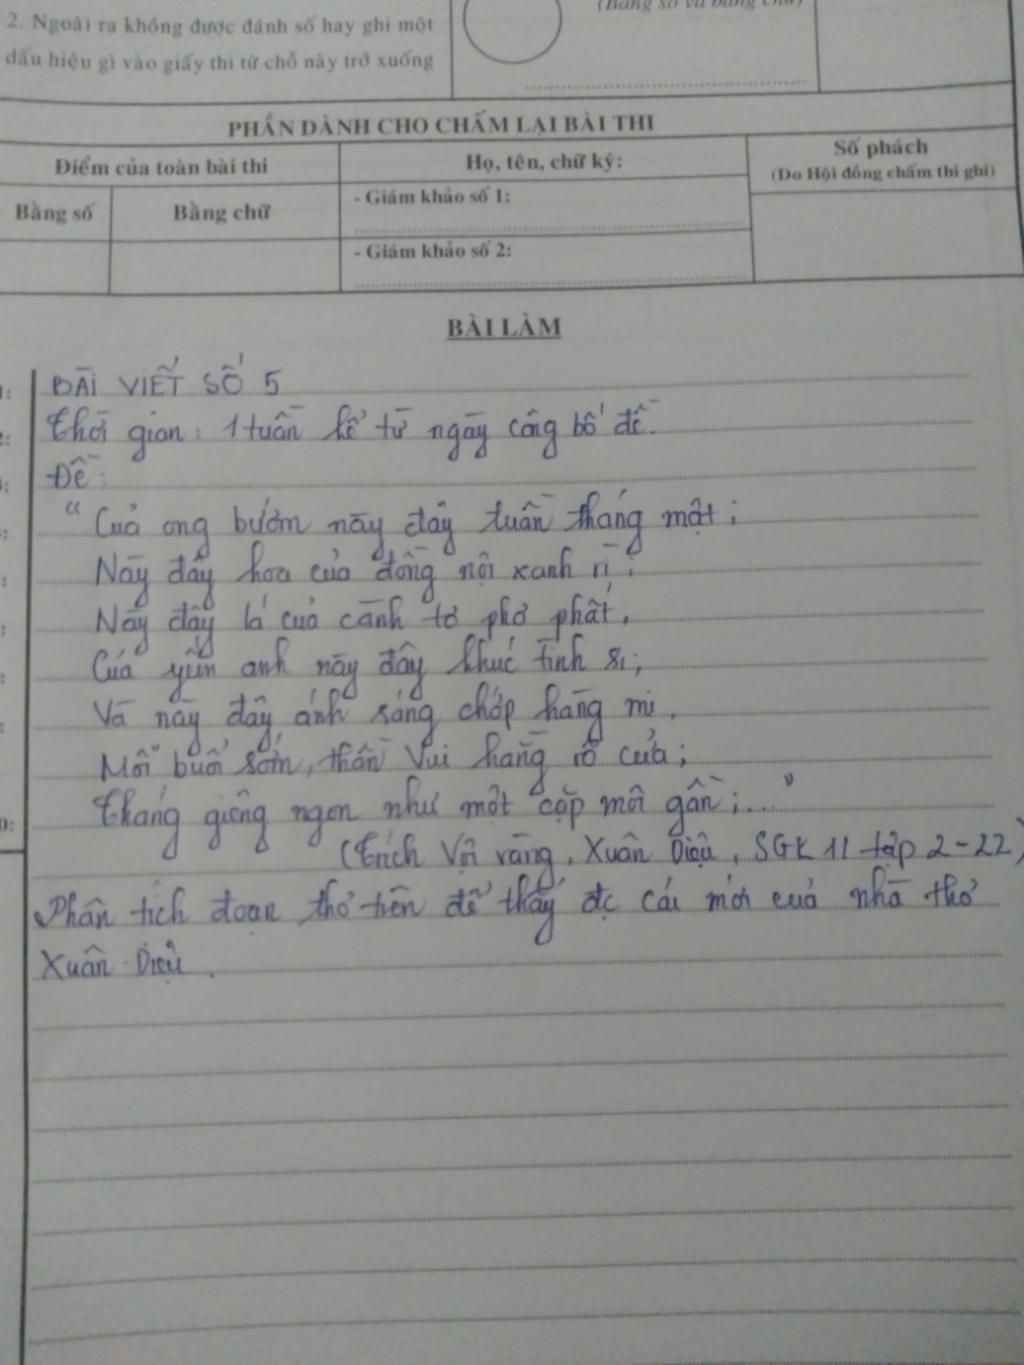 (Bằng số và bằng chữ)
2. Ngoài ra không được đánh số hay ghi một
dấu hiệu gì vào giấy thi từ chỗ này trở xuống
PHẦN DÀNH CHO CHẤM LẠI BÀI THI
Điểm của toàn bài thi
Họ, tên, chữ ký:
Số phách
(Do Hội đồng chấm thi ghi)
Bằng số
Bằng chữ
- Giám khảo số 1:
- Giám khảo số 2:
BÀI LÀM
BÀI VIẾT SỐ 5
Thời gian: 1 tuần kể từ ngày công bố đề.
Đề:
"Của ong bướm này đây tuần tháng mật;
Này đây hoa của đồng nội xanh rì;
Này đây lá của cành tơ phơ phất,
Của yến anh này đây khúc tình si;
Và này đây ánh sáng chớp hàng mi,
Mỗi buổi sớm, thần Vui hằng gõ cửa;
Tháng giêng ngon như một cặp môi gần;..."
(Trích Vội vàng, Xuân Diệu, SGK 11 tập 2-22)
Phân tích đoạn thơ trên để thấy đc cái mới của nhà thơ
Xuân Diệu.